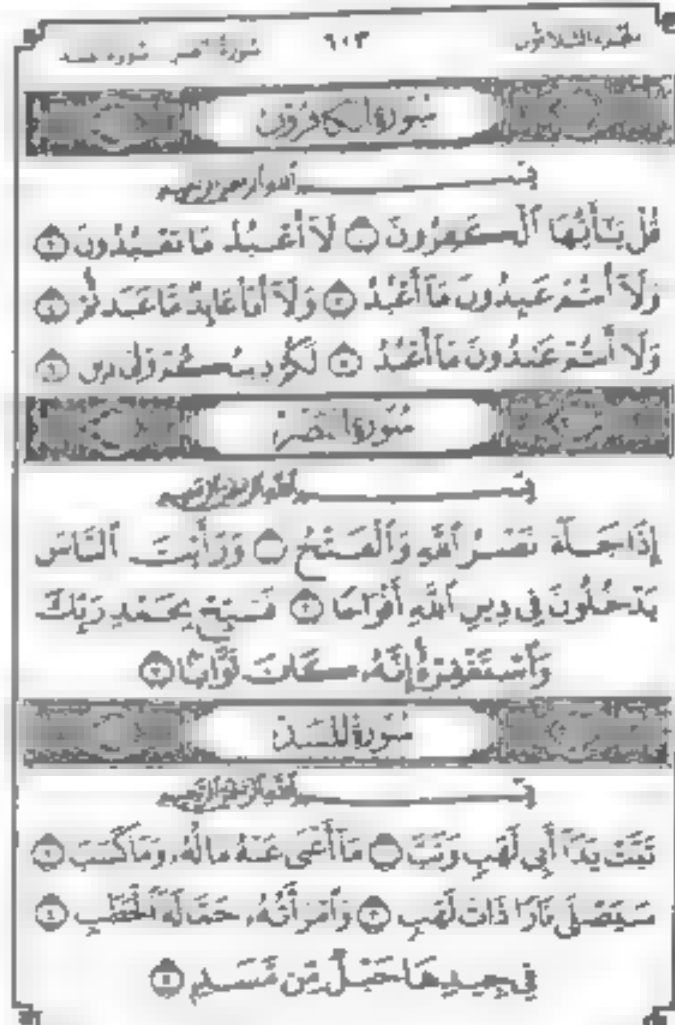 الجزء الثلاثون ٦٠٣ سورة النصر سورة المسد
سُورَةُ الكافِرُون
بِسْمِ اللَّهِ الرَّحْمَٰنِ الرَّحِيمِ
قُلْ يَـٰٓأَيُّهَا ٱلْكَـٰفِرُونَ ١ لَآ أَعْبُدُ مَا تَعْبُدُونَ ٢
وَلَآ أَنتُمْ عَـٰبِدُونَ مَآ أَعْبُدُ ٣ وَلَآ أَنَا۠ عَابِدٌ مَّا عَبَدتُّمْ ٤
وَلَآ أَنتُمْ عَـٰبِدُونَ مَآ أَعْبُدُ ٥ لَكُمْ دِينُكُمْ وَلِىَ دِينِ ٦
سُورَةُ النَّصْرِ
بِسْمِ اللَّهِ الرَّحْمَٰنِ الرَّحِيمِ
إِذَا جَآءَ نَصْرُ ٱللَّهِ وَٱلْفَتْحُ ١ وَرَأَيْتَ ٱلنَّاسَ
يَدْخُلُونَ فِى دِينِ ٱللَّهِ أَفْوَاجًا ٢ فَسَبِّحْ بِحَمْدِ رَبِّكَ
وَٱسْتَغْفِرْهُ إِنَّهُۥ كَانَ تَوَّابًۢا ٣
سُورَةُ المَسَدِ
بِسْمِ اللَّهِ الرَّحْمَٰنِ الرَّحِيمِ
تَبَّتْ يَدَآ أَبِى لَهَبٍ وَتَبَّ ١ مَآ أَغْنَىٰ عَنْهُ مَالُهُۥ وَمَا كَسَبَ ٢
سَيَصْلَىٰ نَارًا ذَاتَ لَهَبٍ ٣ وَٱمْرَأَتُهُۥ حَمَّالَةَ ٱلْحَطَبِ ٤
فِى جِيدِهَا حَبْلٌ مِّن مَّسَدٍۭ ٥